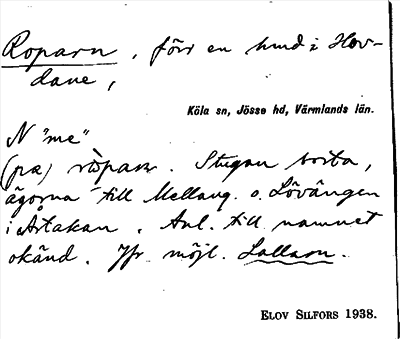 Roparn, förr en hmd i Hov-
dane,
Köla sn, Jösse hd, Värmlands län.
N "me"
(pa) ròpaɴ. Stugan borta,
ägorna till Mellang. o. Lövängen
i Åstakan. Anl. till namnet
okänd. Jfr möjl. Lallarn.
ELOV SILFORS 1938.